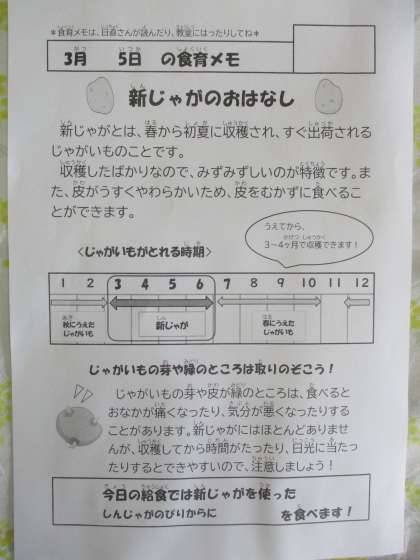 ＊食育メモは、日直さんが読んだり、教室にはったりしてね＊
3月　5日　の食育メモ
新じゃがのおはなし
新じゃがとは、春から初夏に収穫され、すぐ出荷される
じゃがいものことです。
収穫したばかりなので、みずみずしいのが特徴です。ま
た、皮がうすくやわらかいため、皮をむかずに食べるこ
とができます。
うえてから、
3～4ヶ月で収穫できます！
＜じゃがいもがとれる時期＞
1 2 3 4 5 6 7 8 9 10 11 12
秋にうえた
じゃがいも
新じゃが
春にうえた
じゃがいも
じゃがいもの芽や緑のところは取りのぞこう！
じゃがいもの芽や皮が緑のところは、食べると
おなかが痛くなったり、気分が悪くなったりする
ことがあります。新じゃがにはほとんどありませ
んが、収穫してから時間がたったり、日光に当た
ったりするとできやすいので、注意しましょう！
今日の給食では新じゃがを使った
しんじゃがのぴりからに　を食べます！